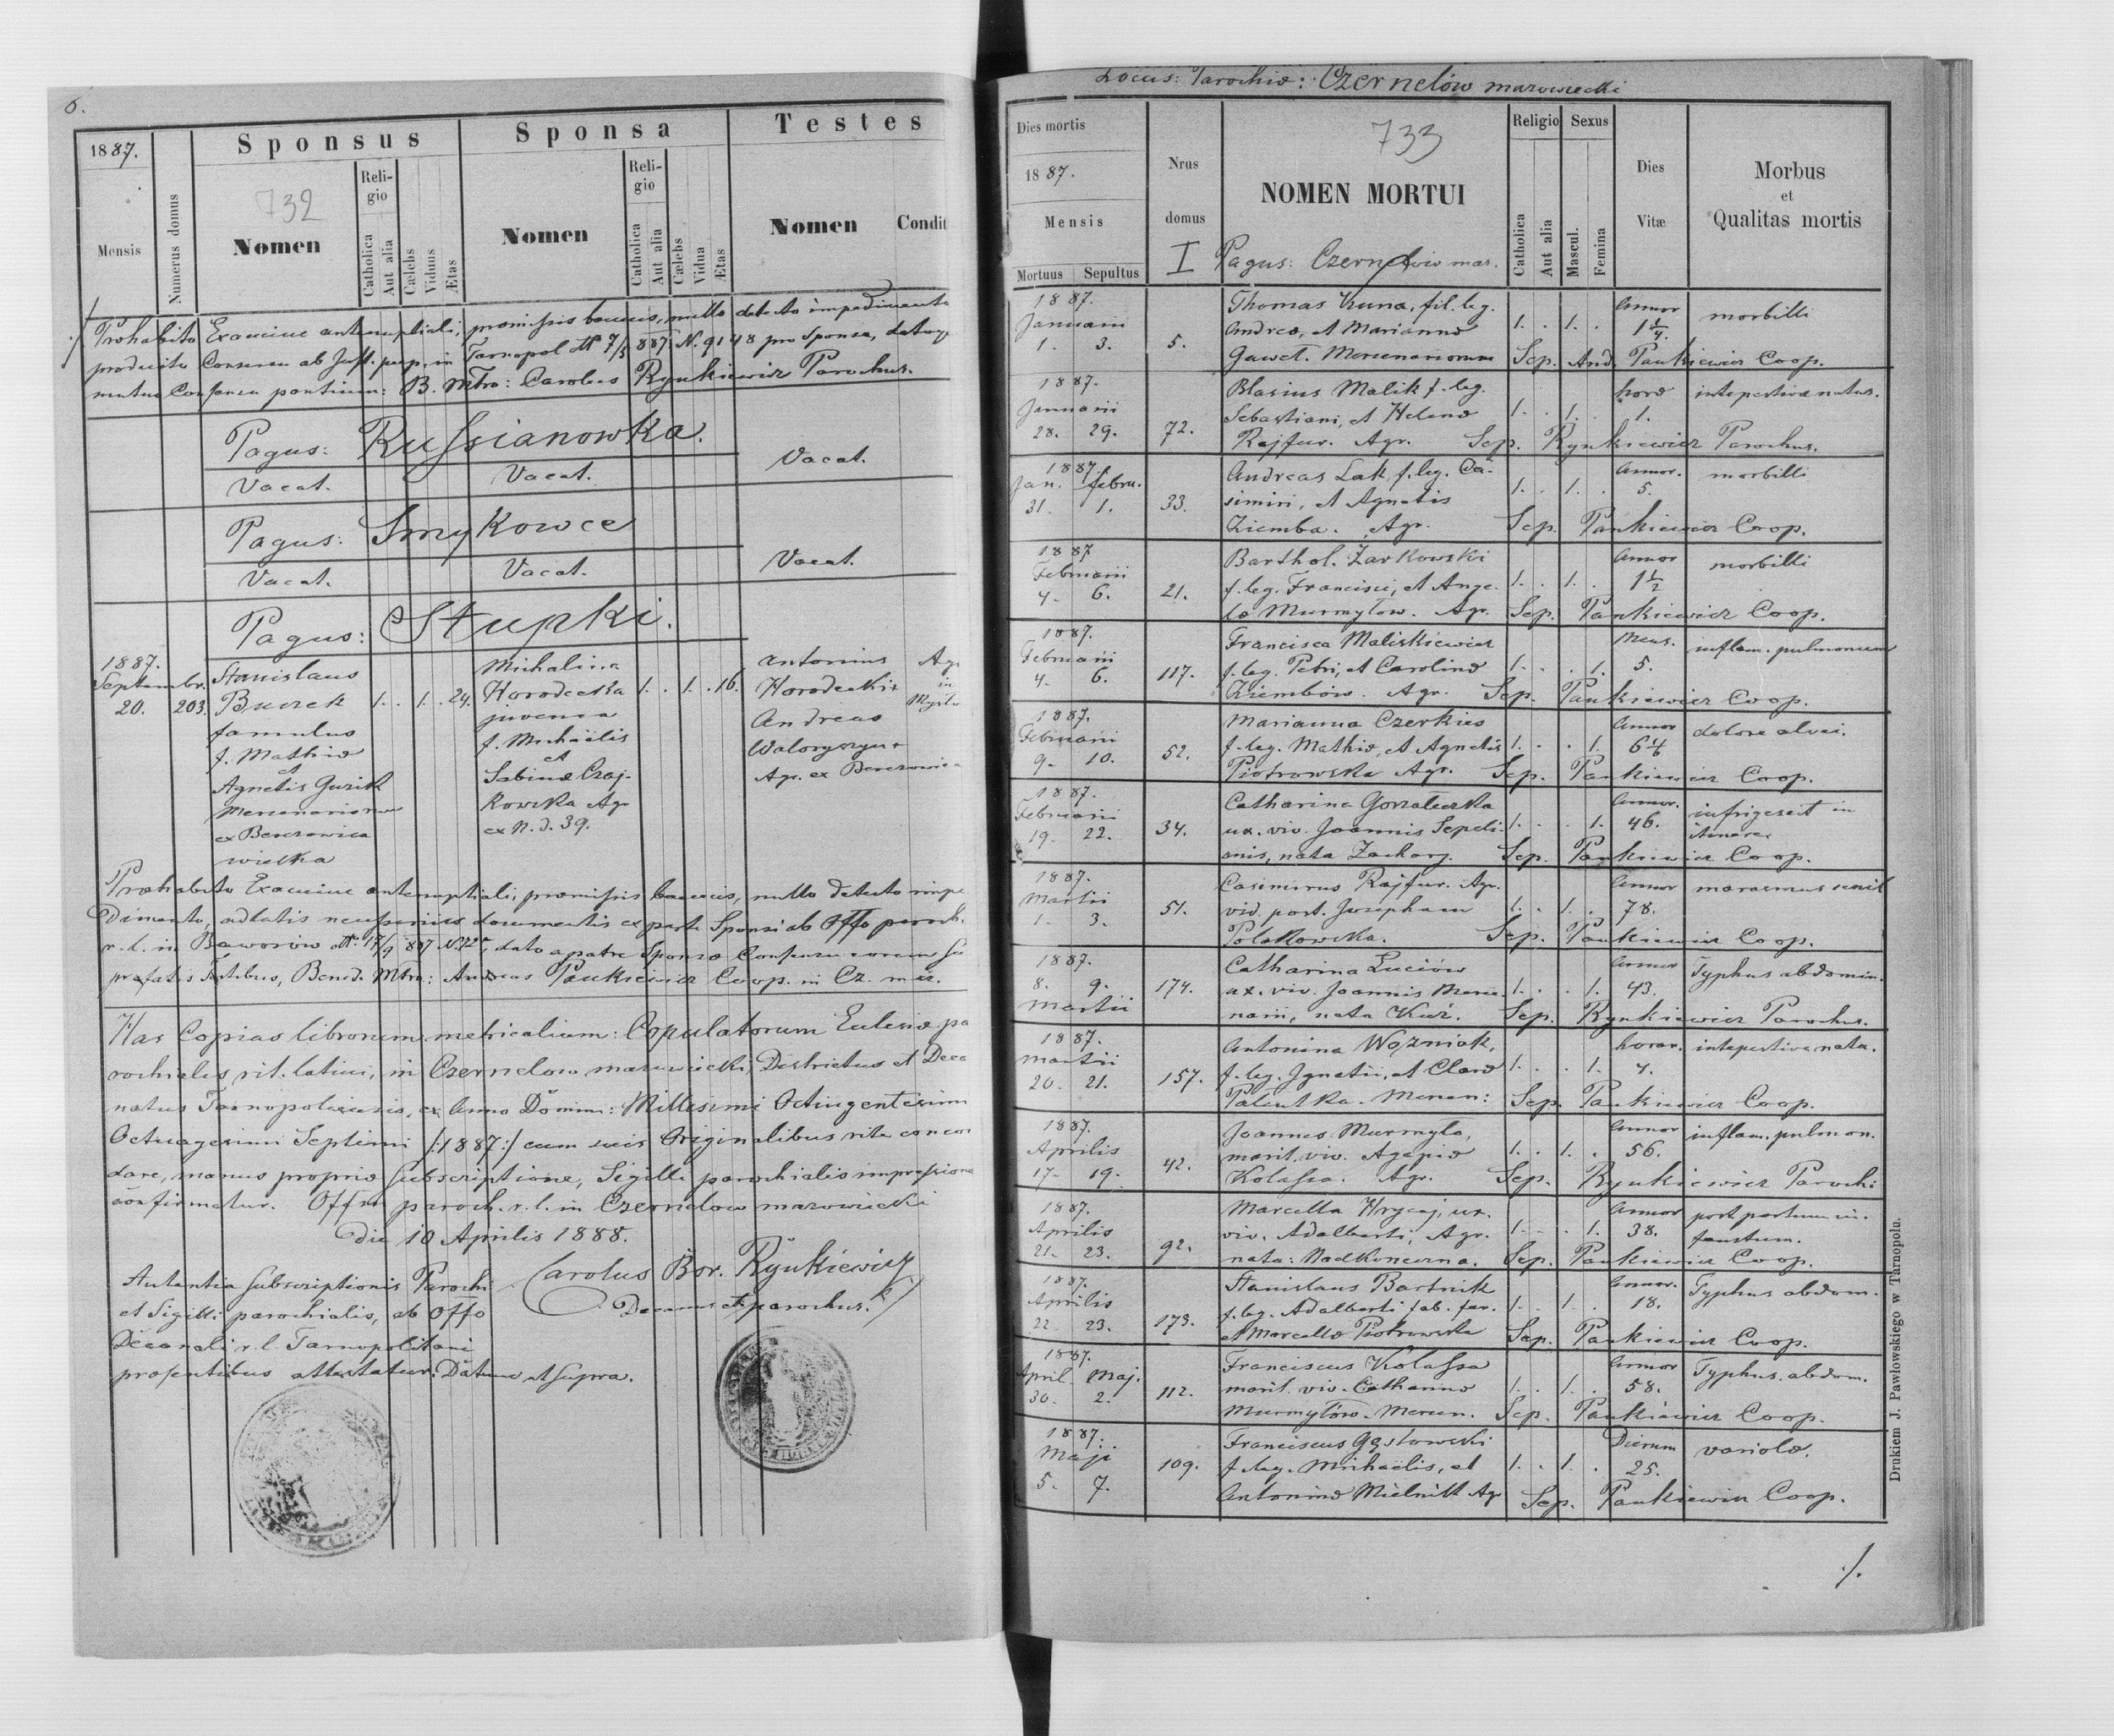 6.
1887.
Sponsus
Sponsa
Testes
Mensis
Numerus domus
732
Nomen
Religio
Catholica
Aut alia
Cælebs
Viduus
Ætas
Nomen
Religio
Catholica
Aut alia
Cælebs
Vidua
Ætas
Nomen
Condit
Præhabito Examine antenuptiali, præmissis bannis, nullo detecto impedimento
producto Consensu ab Jud. pup. in Tarnopol 887 N. 9148 pro Sponsa, datoq
mutuo Consensu partium: B. Mtro: Carolus Rynkiewicz Parochus.
Pagus: Russianowka.
Vacat. Vacat. Vacat.
Pagus: Smykowce
Vacat. Vacat. Vacat.
Pagus: Stupki.
1887.
Septembr.
20. 203.
Stanislaus
Burek 1. . 1. . 24.
famulus
f. Mathiæ
et
Agnetis Guzik
Mercenariorum
ex Berezowica
wielka
Michalina
Horodecka 1. . 1. . 16.
juvenca
f. Michaëlis
et
Sabinæ Czaj-
kowska Agr
ex N. d. 39.
Antonius Agr
Horodecki in
Andreas
Agr. ex Berezowica
Præhabito Examine antenuptiali, præmissis bannis, nullo detecto impe
dimento, adlatis necessariis documentis ex parte Sponsi ab Offo paroch.
r. l. in Baworów 17/9 887 dato a patre Sponsæ Consensu coram
præfatis Testibus, Bened. Mtrm: Andreas Pankiewicz Coop. in Cz. maz.
Has Copias librorum metricalium: Copulatorum Eclesiæ pa
rochialis rit. latini, in Czernelow mazowiecki, Districtus et Deca
natus Tarnopoliensis, ex Anno Domini: Millesimi Octingentesimi
Octuagesimi Septimi /:1887:/ cum suis Originalibus rite concor
dare, manus propriæ subscriptione, Sigilli parochialis impressione
confirmatur. Offm paroch. r. l. in Czernelow mazowiecki
Die 10 Aprilis 1888.
Carolus Bor. Rynkiewicz
Decanus et parochus.
Autentia subscriptionis Parochi
et Sigilli parochialis, ab Offo
Decanali r. l. Tarnopolitani
præsentibus attestatur. Datum ut supra.
Locus: Parochiæ: Czernelów mazowiecki
Dies mortis
1887.
Mensis
Mortuus Sepultus
Nrus
domus
733
NOMEN MORTUI
I Pagus: Czernelow maz.
Religio
Catholica
Aut alia
Sexus
Mascul.
Femina
Dies
Vitæ
Morbus
et
Qualitas mortis
1887. Thomas Kuna, fil. leg. Annor morbilli
Januarii Andreæ, et Mariannæ 1. . 1. . 1 1/4.
1. 3. 5. Gawct. Mercenariorum Sep. And. Pankiewicz Coop.
1887. Blasius Malik f. leg. horæ intepestive natus.
Januarii Sebastiani, et Helenæ 1. . 1. . 1.
28. 29. 72. Rajfur. Agr. Sep. Rynkiewicz Parochus.
1887. Andreas Lak, f. leg. Ca- Annor. morbilli
Jan. Febru. simiri, et Agnetis 1. . 1. . 5.
31. 1. 33. Ziemba. Agr. Sep. Pankiewicz Coop.
1887 Barthol. Żarkowski Annor morbilli
Februarii f. leg. Francisci, et Ange- 1. . 1. . 1 1/2
4. 6. 21. læ Murmyłow. Agr. Sep. Pankiewicz Coop.
1887. Francisca Maliskiewicz Mens. inflam. pulmonum
Februarii f. leg. Petri, et Carolinæ 1. . . 1. 5.
4. 6. 117. Ziembów. Agr. Sep. Pankiewicz Coop.
1887. Marianna Czerkies Annor dolore alvei.
Februarii f. leg. Mathiæ, et Agnetis 1. . . 1. 6
9. 10. 52. Piotrowska Agr. Sep. Pankiewicz Coop.
1887. Catharina Gorzateczka Annor. infrigescit in
Februarii ux. viv. Joannis 1. . . 1. 46. itinere
19. 22. 34. nata Zachorj. Sep. Pankiewicz Coop.
1887. Casimirus Rajfur. Agr. Annor marasmus senil
Martii vid. post. Josepham 1. . 1. . 78.
1. 3. 51. Polakowska. Sep. Pankiewicz Coop.
1887. Catharina Luciów Annor Typhus abdomin.
8. 9. 174. ux. viv. Joannis Merce- 1. . . 1. 43.
Martii narii, nata Kuś. Sep. Rynkiewicz Parochus.
1887. Antonina Woźniak, horar. intepestive nata.
Martii f. leg. Ignatii, et Claræ 1. . . 1. 4.
20. 21. 157. Palutka. Mercen: Sep. Pankiewicz Coop.
1887. Joannes Murmyło, Annor inflam. pulmon.
Aprilis marit. viv. Agapiæ 1. . 1. . 56.
17. 19. 42. Kolassa. Agr. Sep. Rynkiewicz Paroch:
1887. Marcella Hrycaj, ux. Annor post partum in-
Aprilis viv. Adalberti, Agr. 1. . . 1. 38. faustum.
21. 23. 92. nata: Nadkoneczna. Sep. Pankiewicz Coop.
1887. Stanislaus Bartnik Annor. Typhus abdom.
Aprilis f. leg. Adalberti fab. fer. 1. . 1. . 18.
22. 23. 173. et Marcellæ Piotrowska Sep. Pankiewicz Coop.
1887. Franciscus Kolassa Annor Typhus. abdom.
April. Maj. marit. viv. Catharinæ 1. . 1. . 58.
30. 2. 112. Murmyłów. Mercen. Sep. Pankiewicz Coop.
1887. Franciscus Gąstowski Dierum variolæ.
Maji f. leg. Michaëlis, et 1. . 1. . 25.
5. 7. 109. Antoninæ Mielnik Agr Sep. Pankiewicz Coop.
Drukiem J. Pawłowskiego w Tarnopolu.
./.